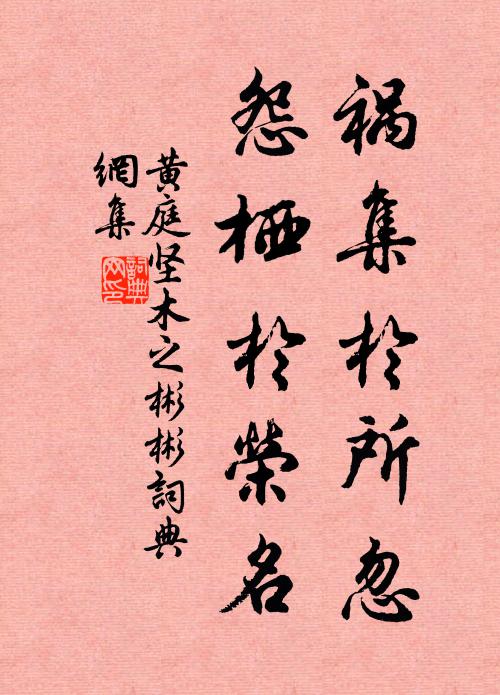 祸集於所忽
怨栖於榮名
黄庭坚木之彬彬詞典
網集
詞典
网印